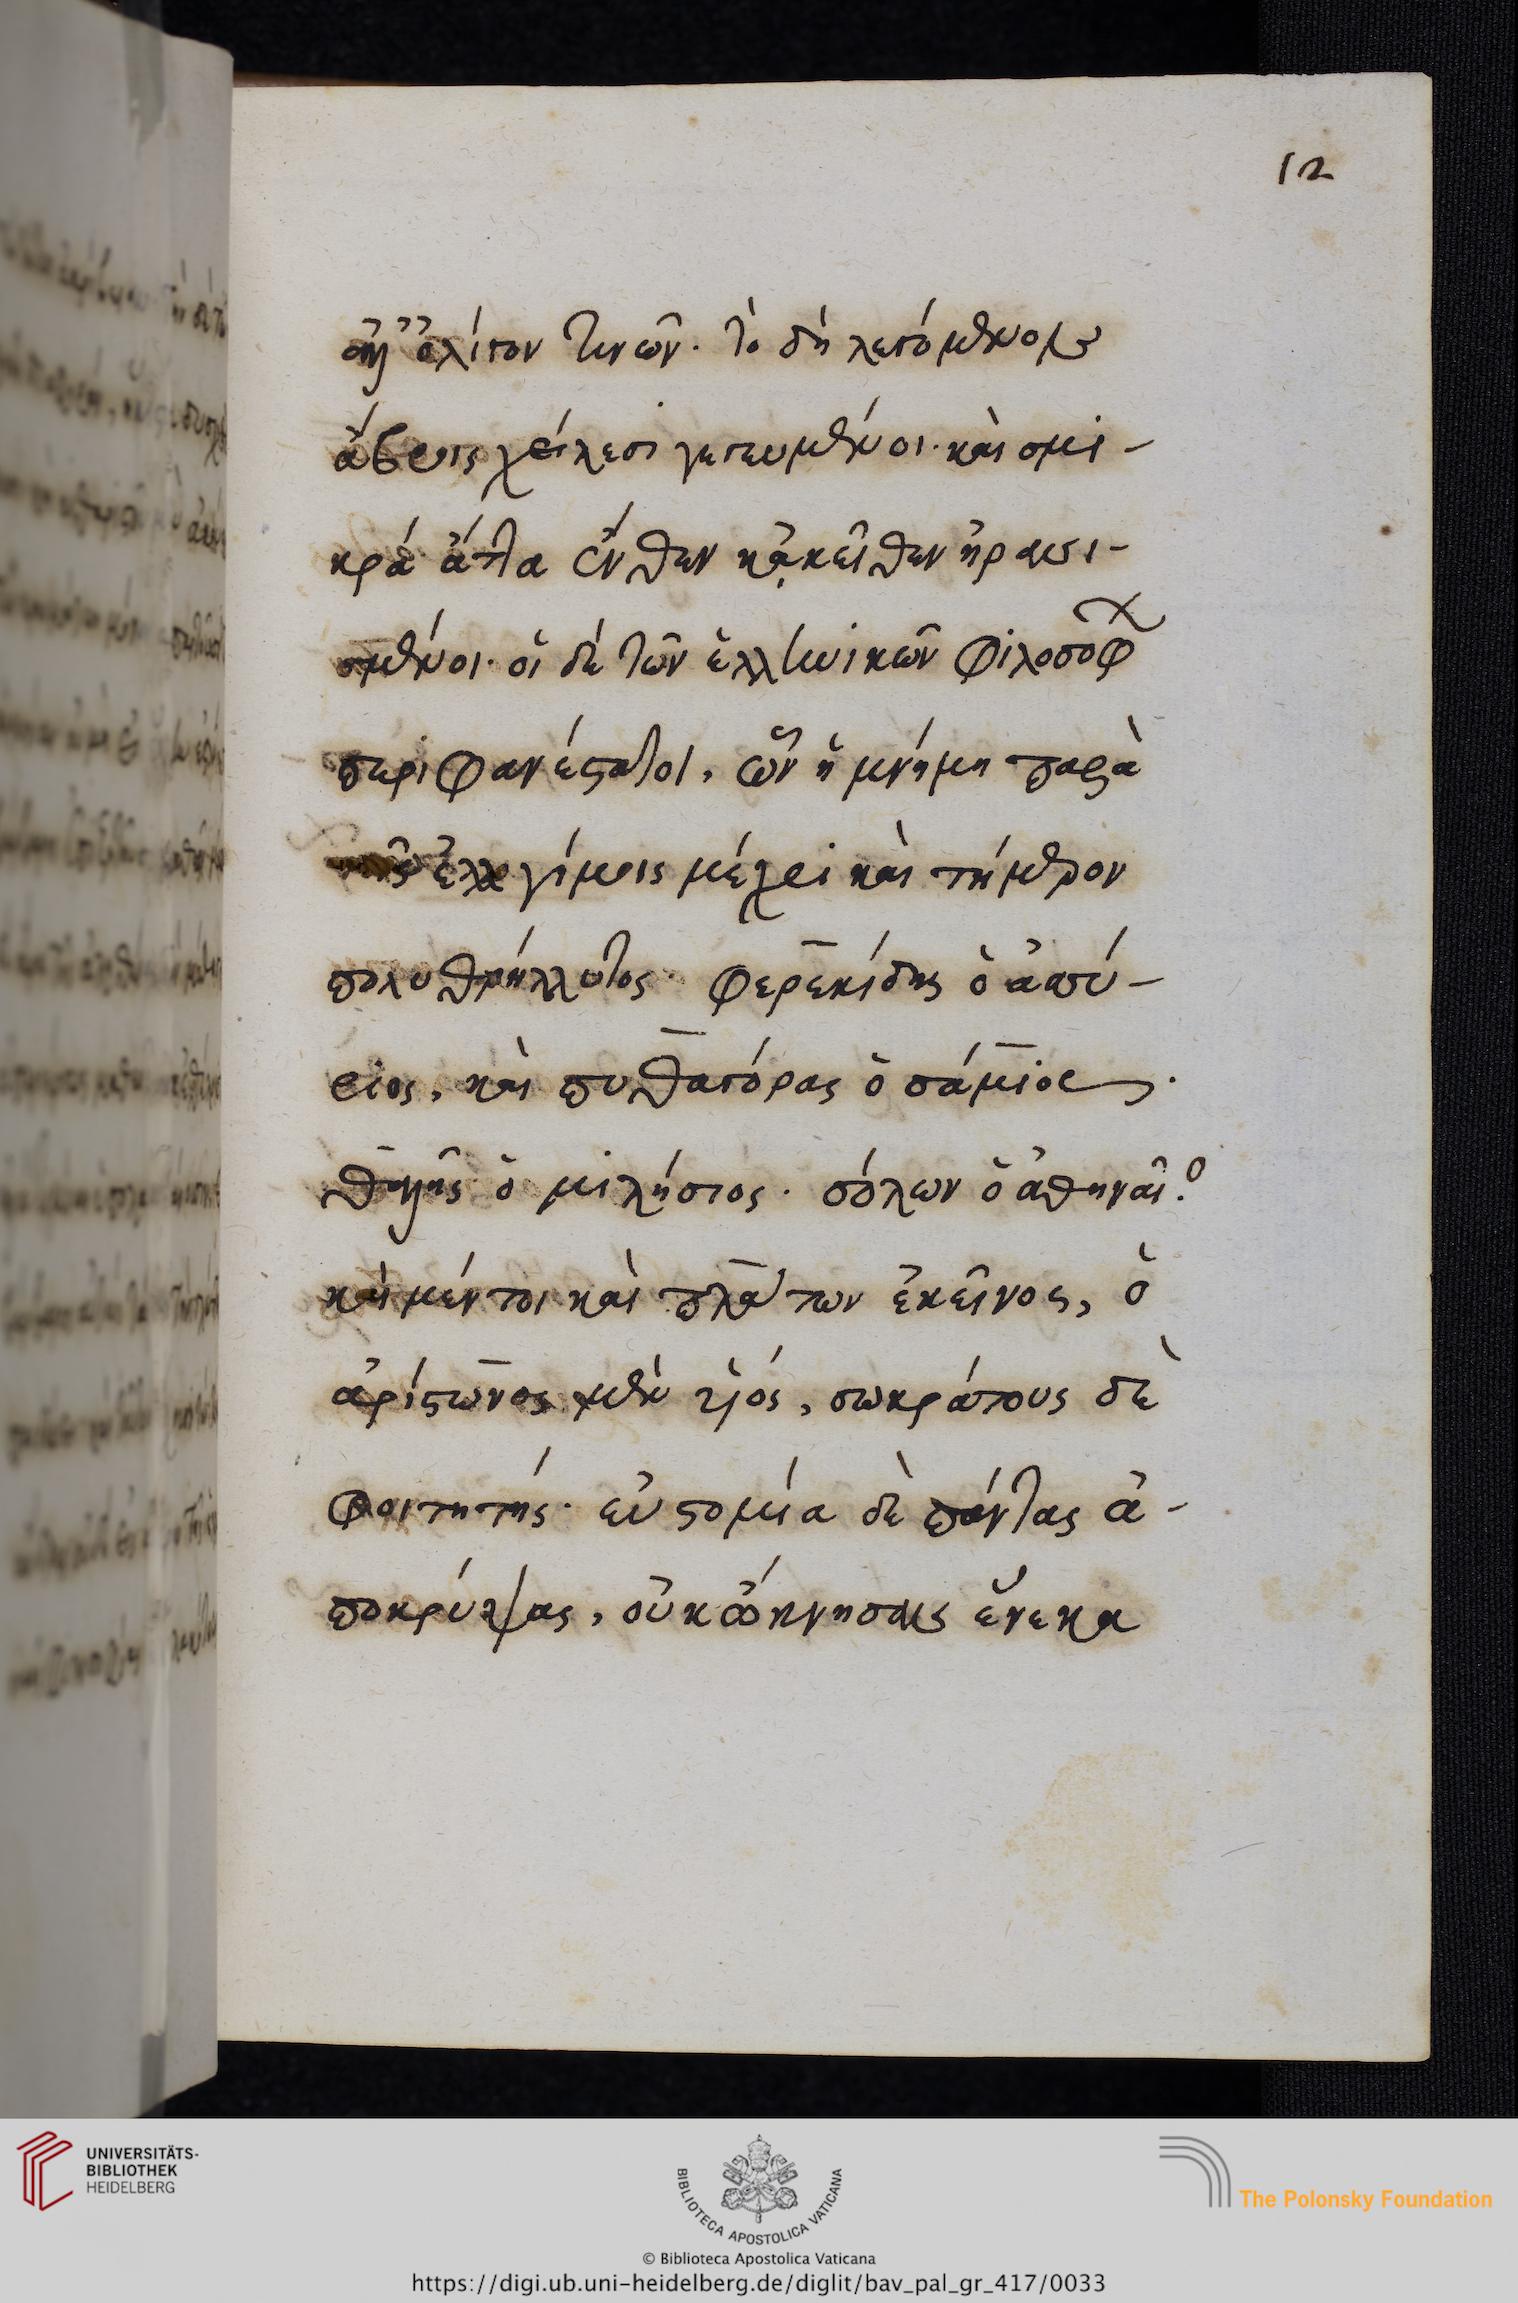 ὀλίγων τινῶν· τὸ δὴ λεγόμενον
ἄκροις χείλεσι γεγευμένοι· καὶ σμι-
κρὰ ἄττα ἔνθεν κἀκεῖθεν ἠρανι-
σμένοι· οἱ δὲ τῶν ἑλληνικῶν φιλοσόφων
περιφανέστατοι, ὧν ἡ μνήμη παρὰ
τοῖς ἐλλογίμοις μέχρι καὶ τήμερον
πολυθρύλλητος· φερεκίδης ὁ ἀσσύ-
ριος, καὶ πυθαγόρας ὁ σάμιος·
θαλῆς ὁ μιλήσιος· σόλων ὁ ἀθηναῖος
καὶ μέντοι καὶ πλάτων ἐκεῖνος, ὁ
ἀρίστωνος μὲν υἱός, σωκράτους δὲ
φοιτητής· εὐστομία δὲ πάντας ἀ-
ποκρύψας, οὐκ ὤκνησαν ἕνεκα
12
UNIVERSITÄTS-
BIBLIOTHEK
HEIDELBERG
BIBLIOTECA APOSTOLICA VATICANA
The Polonsky Foundation
© Biblioteca Apostolica Vaticana
https://digi.ub.uni-heidelberg.de/diglit/bav_pal_gr_417/0033